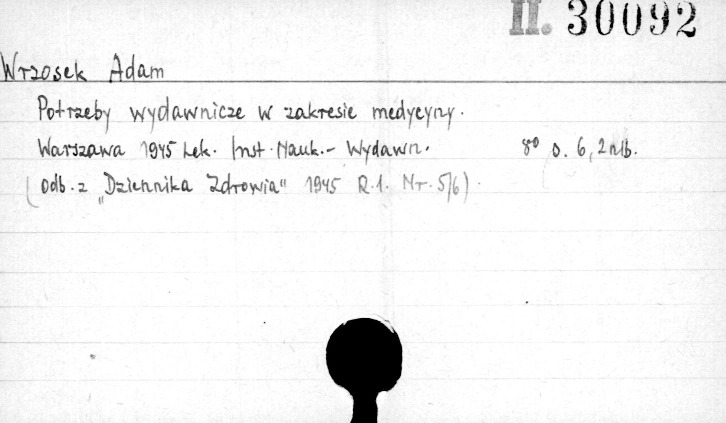 II. 30092
Wrzosek Adam
Potrzeby wydawnicze w zakresie medycyny.
Warszawa 1945 Lek. Inst. Nauk.- Wydawn. 8° s. 6, 2 nlb.
(odb. z „Dziennika Zdrowia" 1945 R.1. Nr. 5/6).